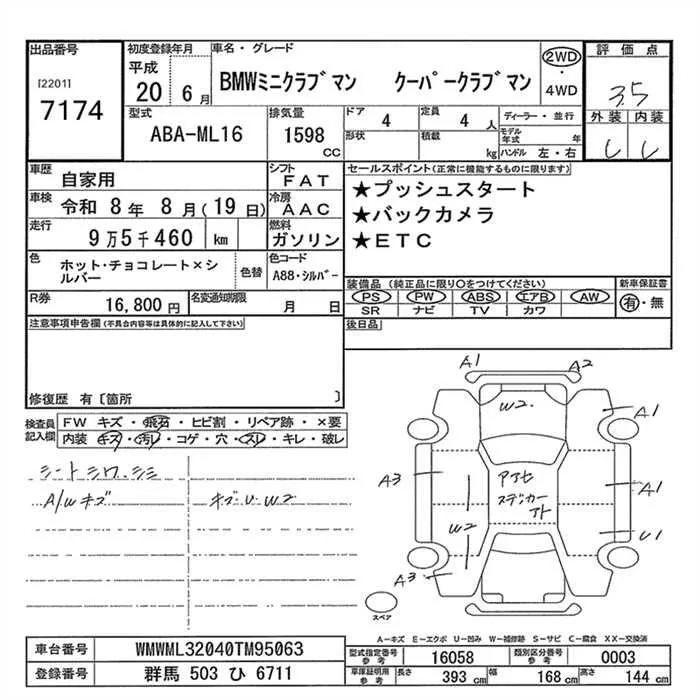 出品番号 初度登録年月 車名・グレード 2WD 評価点
[2201] 平成 BMWミニクラブマン クーパークラブマン ・ 3.5
7174 20 6月 4WD 外装 内装
型式 排気量 ドア 4 定員 4人 ディーラー・並行
ABA-ML16 1598 CC 形状 積載 kg モデル年式 年 ハンドル 左・右
車歴 自家用 シフト FAT セールスポイント(正常に機能するものに限ります)
車検 令和 8年 8月(19日) 冷房 AAC ★プッシュスタート
走行 9万5千460 km 燃料 ガソリン ★バックカメラ
★ETC
色 ホット・チョコレート×シルバー 色替 色コード A88・シルバー
装備品 (純正品に限り○をつけてください) 新車保証書
R券 16,800円 名変通知期限 月 日 PS PW ABS エアB AW 有・無
SR ナビ TV カワ
注意事項申告欄(不具合内容等は具体的に記入して下さい) 後日品
修復歴 有〔箇所 〕
検査員記入欄 FW キズ・飛石・ヒビ割・リペア跡・×要
内装 キズ・汚レ・コゲ・穴・スレ・キレ・破レ
シートシワ、シミ
A/Wキズ キズU W2
A1 A2
W2. A1
A3 アクセ A1
ステッカー
アト
W2 U1
A3
スペア
A―キズ E―エクボ U―凹み W―補修跡 S―サビ C―腐食 XX―交換済
車台番号 WMWML32040TM95063 型式指定番号 参考 16058 類別区分番号 参考 0003
登録番号 群馬 503 ひ 6711 車庫証明用 参考 長さ 393 cm 幅 168 cm 高さ 144 cm